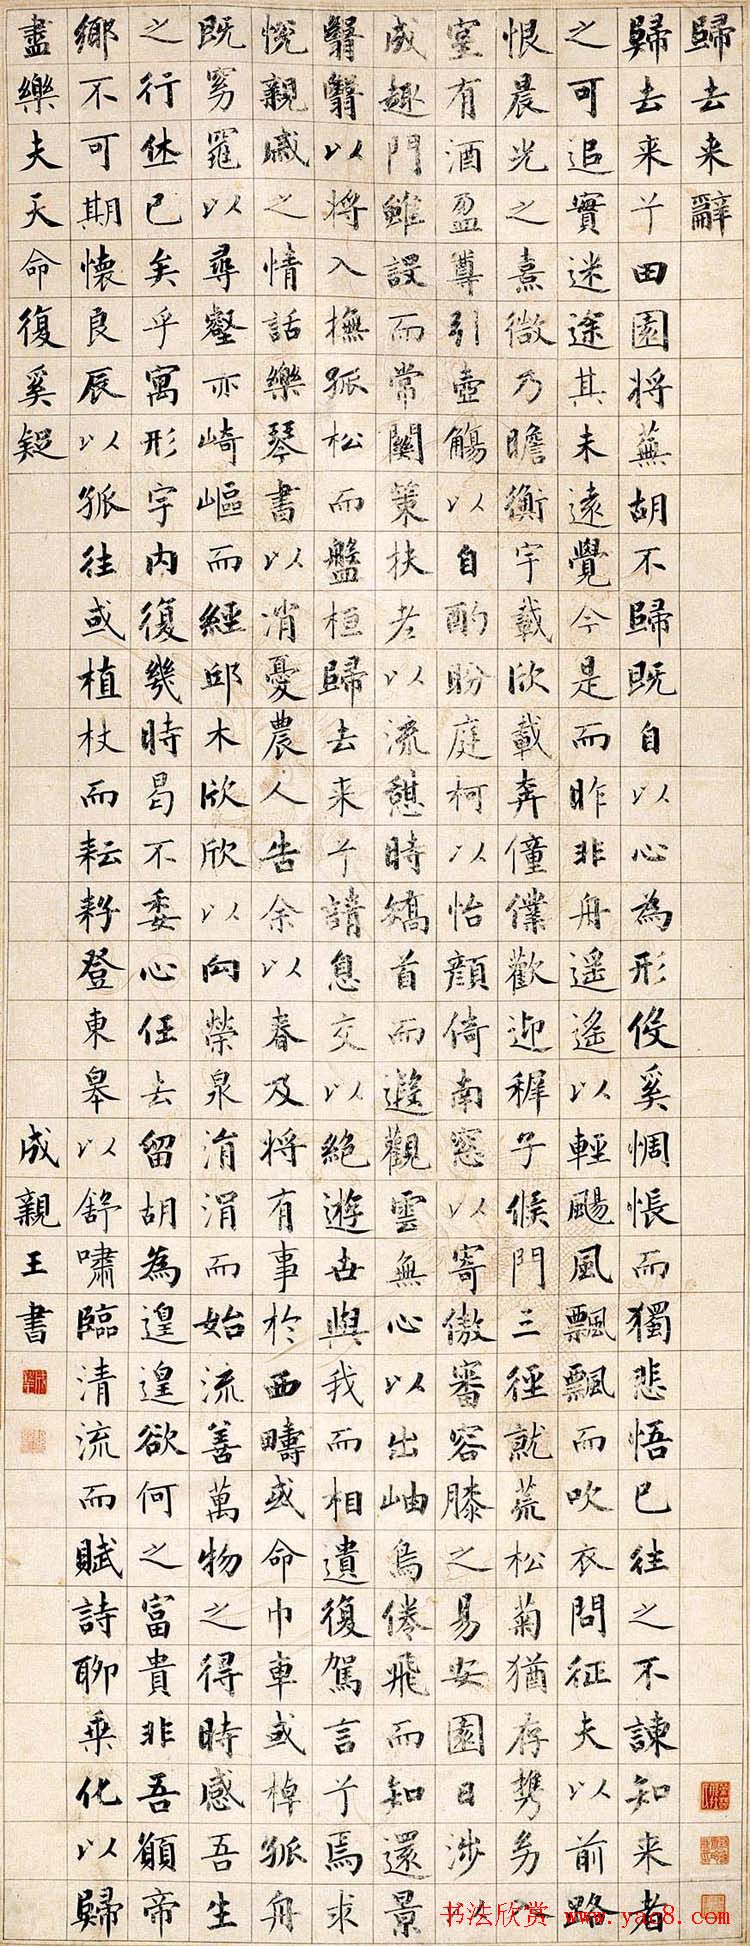 歸去来辭
歸去来兮田園将蕪胡不歸既自以心為形役奚惆悵而獨悲悟已往之不諫知来者
之可追實迷途其未遠覺今是而昨非舟遥遥以輕颺風飄飄而吹衣問征夫以前路
恨晨光之熹微乃瞻衡宇載欣載奔僮僕歡迎稺子候門三徑就荒松菊猶存攜幼入
室有酒盈尊引壺觴以自酌眄庭柯以怡顔倚南窓以寄傲審容膝之易安園日涉以
成趣門雖設而常關策扶老以流憩時矯首而遐觀雲無心以出岫鳥倦飛而知還景
翳翳以将入撫孤松而盤桓歸去来兮請息交以絕遊世與我而相遺復駕言兮焉求
悅親戚之情話樂琴書以消憂農人告余以春及将有事於西疇或命巾車或棹孤舟
既窈窕以尋壑亦崎嶇而經邱木欣欣以向榮泉涓涓而始流善萬物之得時感吾生
之行休已矣乎寓形宇内復幾時曷不委心任去留胡為遑遑欲何之富貴非吾願帝
鄉不可期懷良辰以孤往或植杖而耘耔登東皋以舒嘯臨清流而賦詩聊乘化以歸
盡樂夫天命復奚疑
成親王書
书法欣赏 www.yac8.com